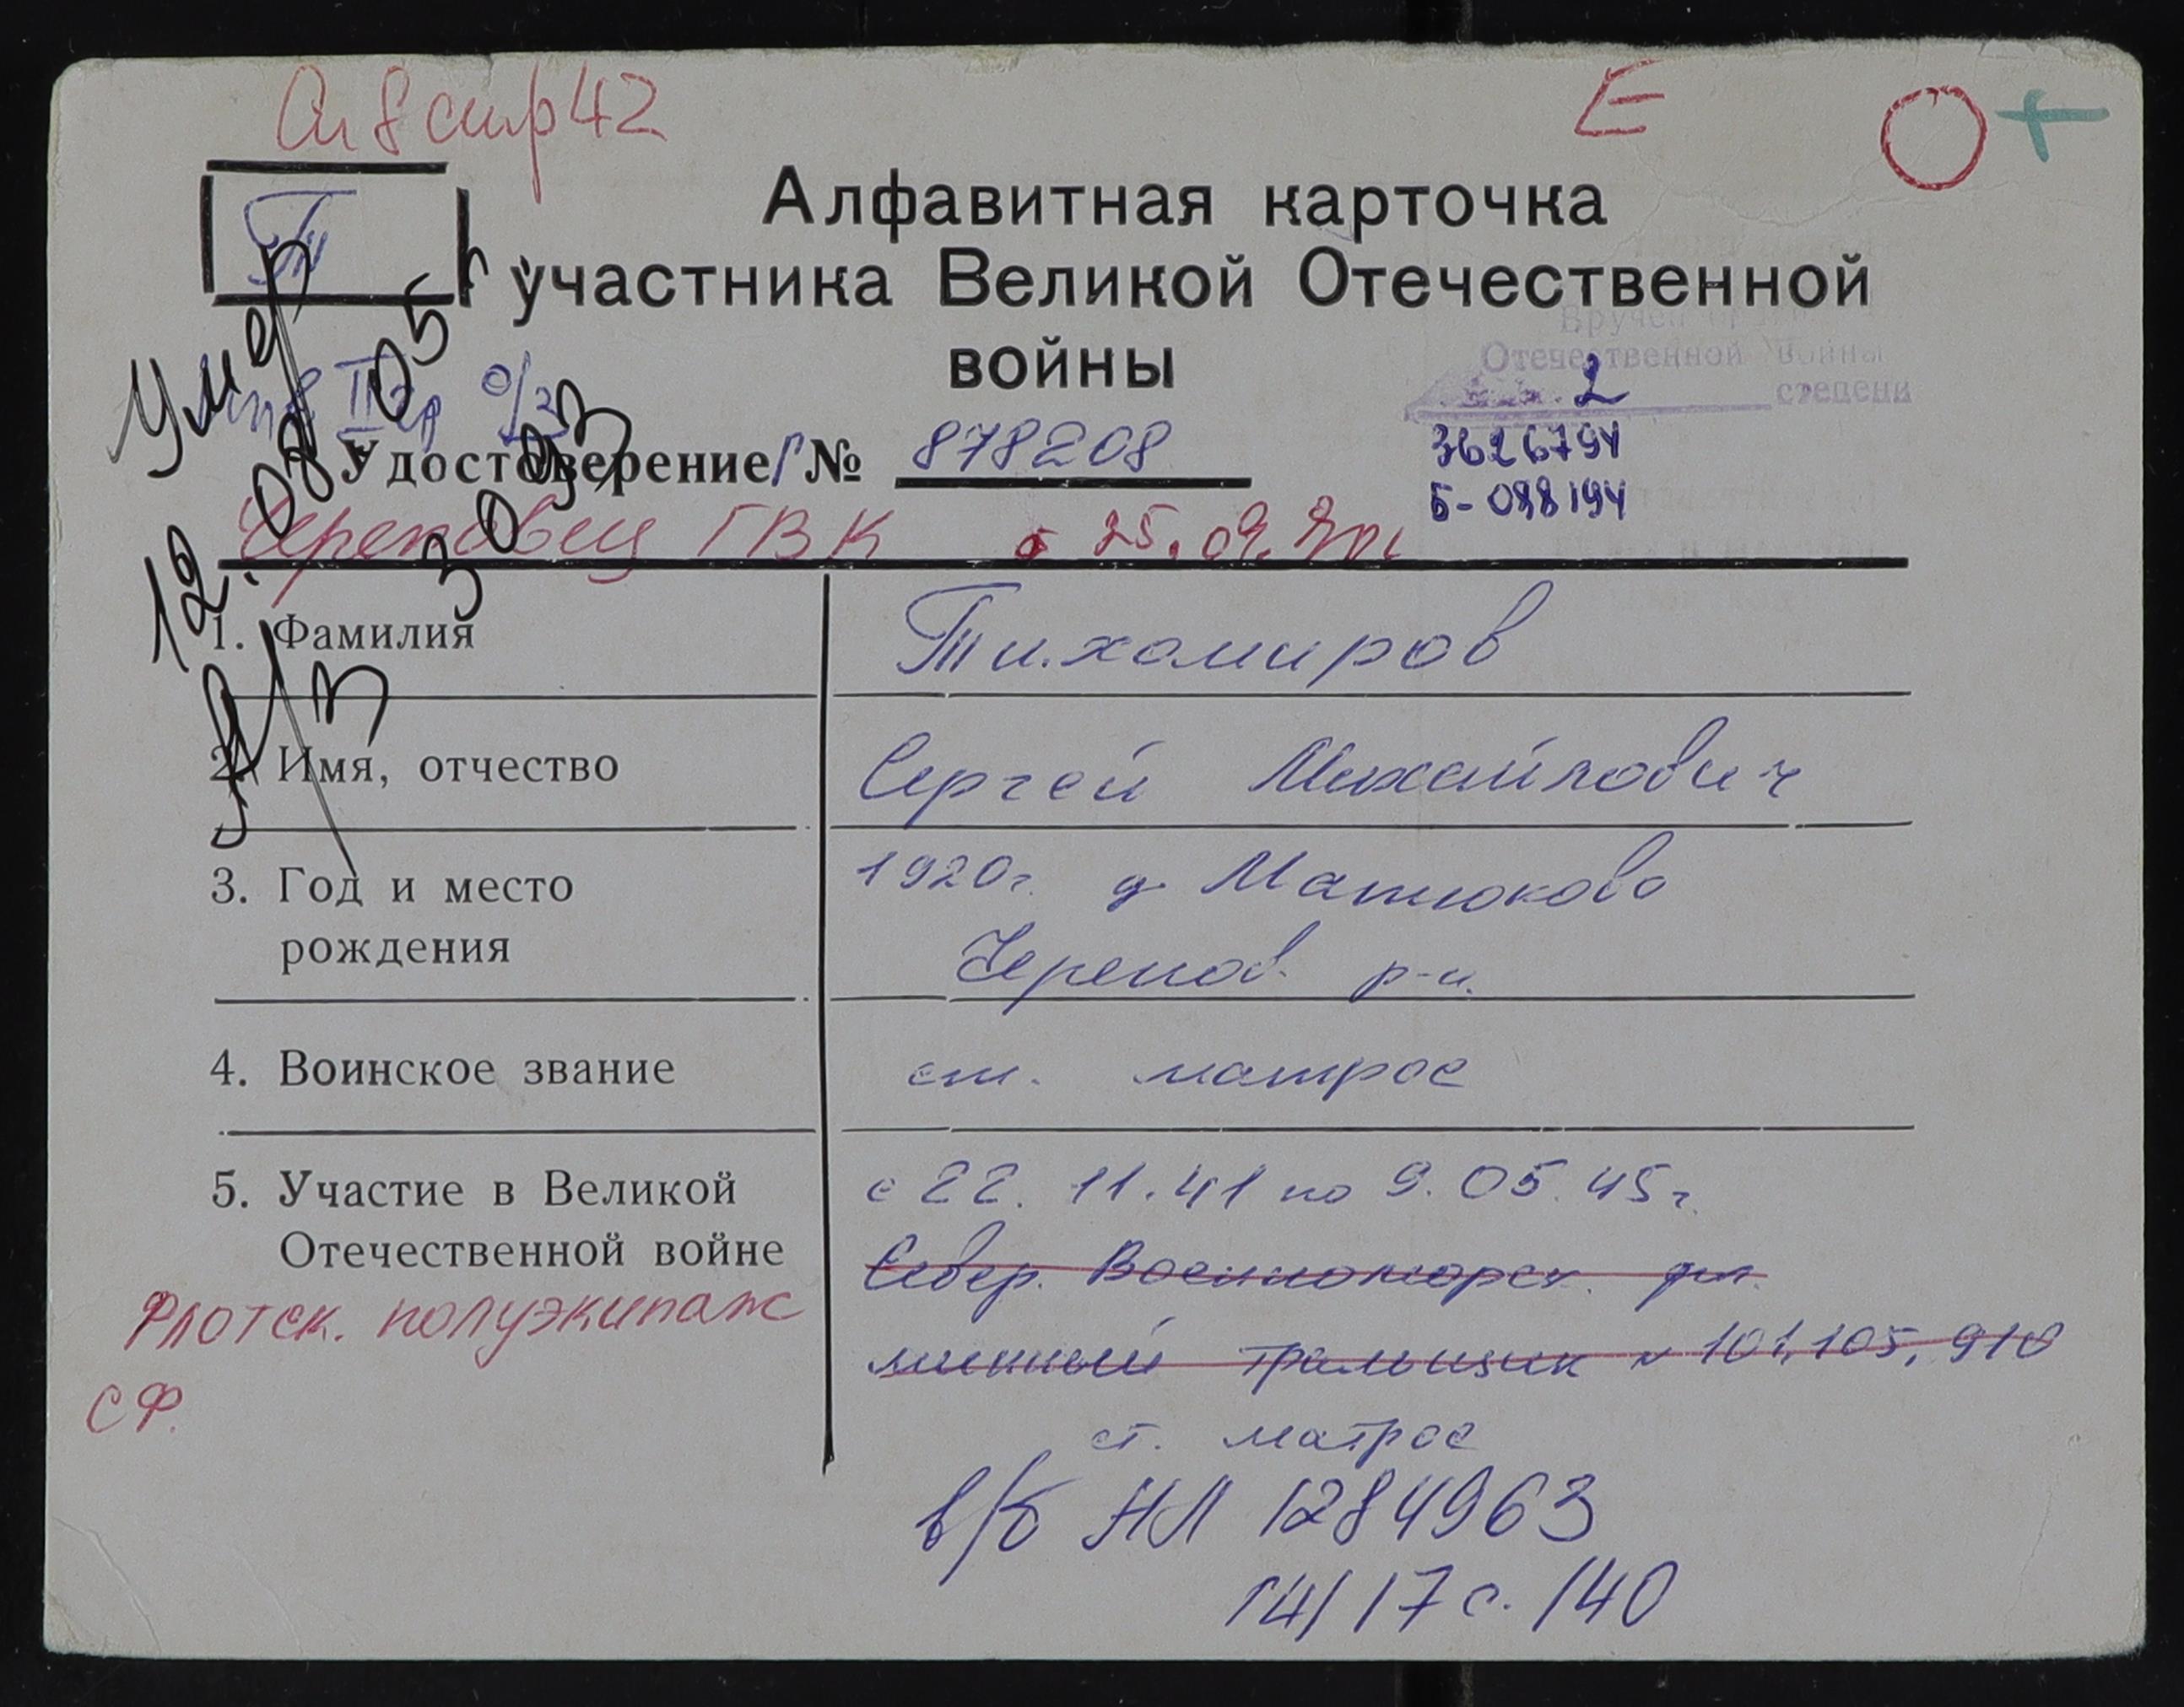 Ал 8 стр 42
Е
Т
Алфавитная карточка
участника Великой Отечественной
войны
Вручен
Отечественной войны
2 степени
Умер
12.08.05
инв II гр о/з
Удостоверение Г № 878208
3626794
Б-098194
Череповец ГВК 25.09.
1. Фамилия Тихомиров
2. Имя, отчество Сергей Михайлович
3. Год и место 1920г. д. Матюково
рождения Черепов. р-н.
4. Воинское звание ст. матрос
5. Участие в Великой с 22.11.41 по 9.05.45г.
Отечественной войне Север. Военноморск. фл.
Флотск. полуэкипаж минный тральщик № 101, 105, 910
СФ. ст. матрос
в/б НЛ 1284963
14/17 с. 140